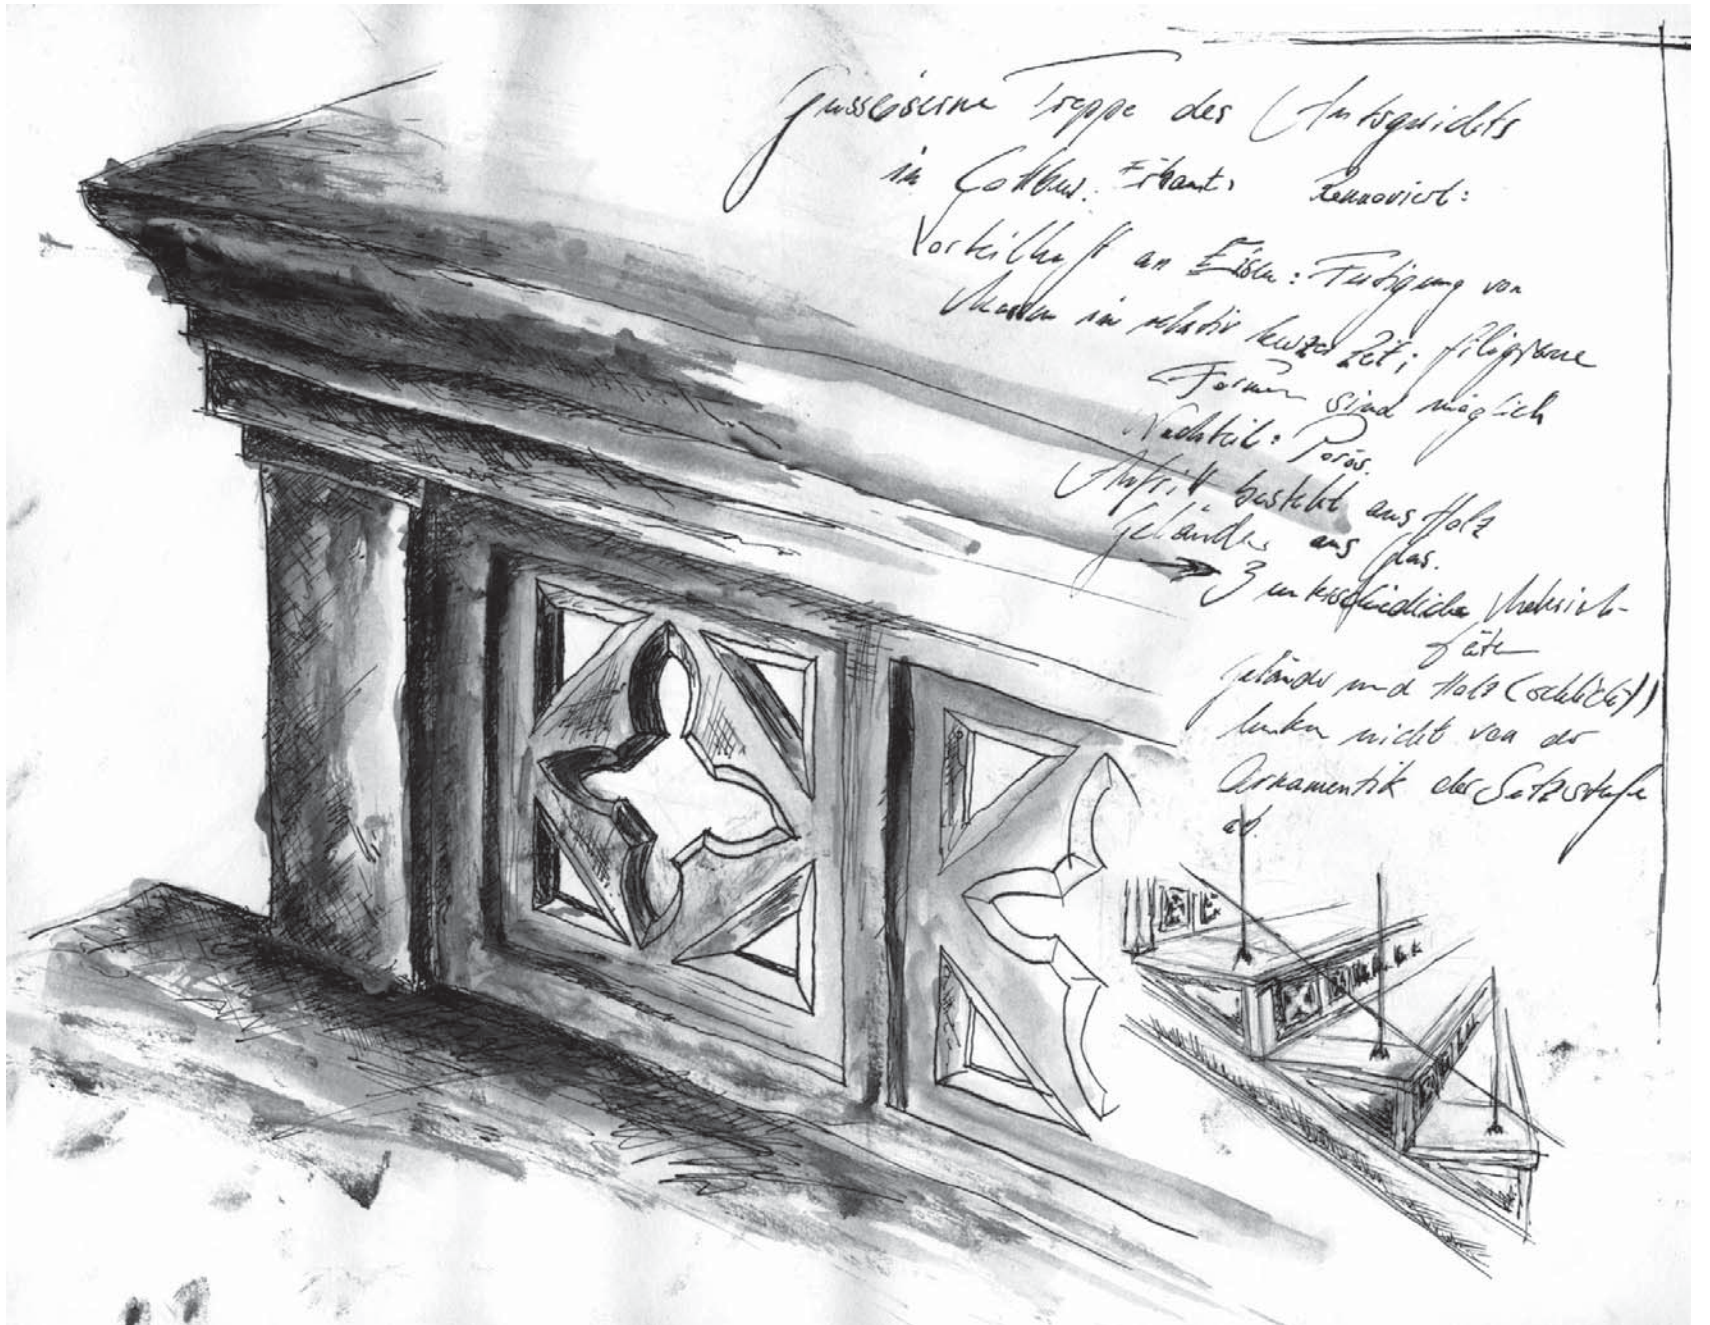 Gusseiserne Treppe des Amtsgerichts
in Cottbus. Erbaut: Rennoviert:
Vorteilhaft an Eisen: Fertigung von
Massen in relativ kurzer Zeit; filigrane
Formen sind möglich
Nachteil: Porös.
Auftritt besteht aus Holz
Geländer aus Glas.
3 unterschiedliche Materiali-
täten
Geländer und Holz (schlicht)
lenken nicht von der
Ornamentik der Setzstufe
ab.